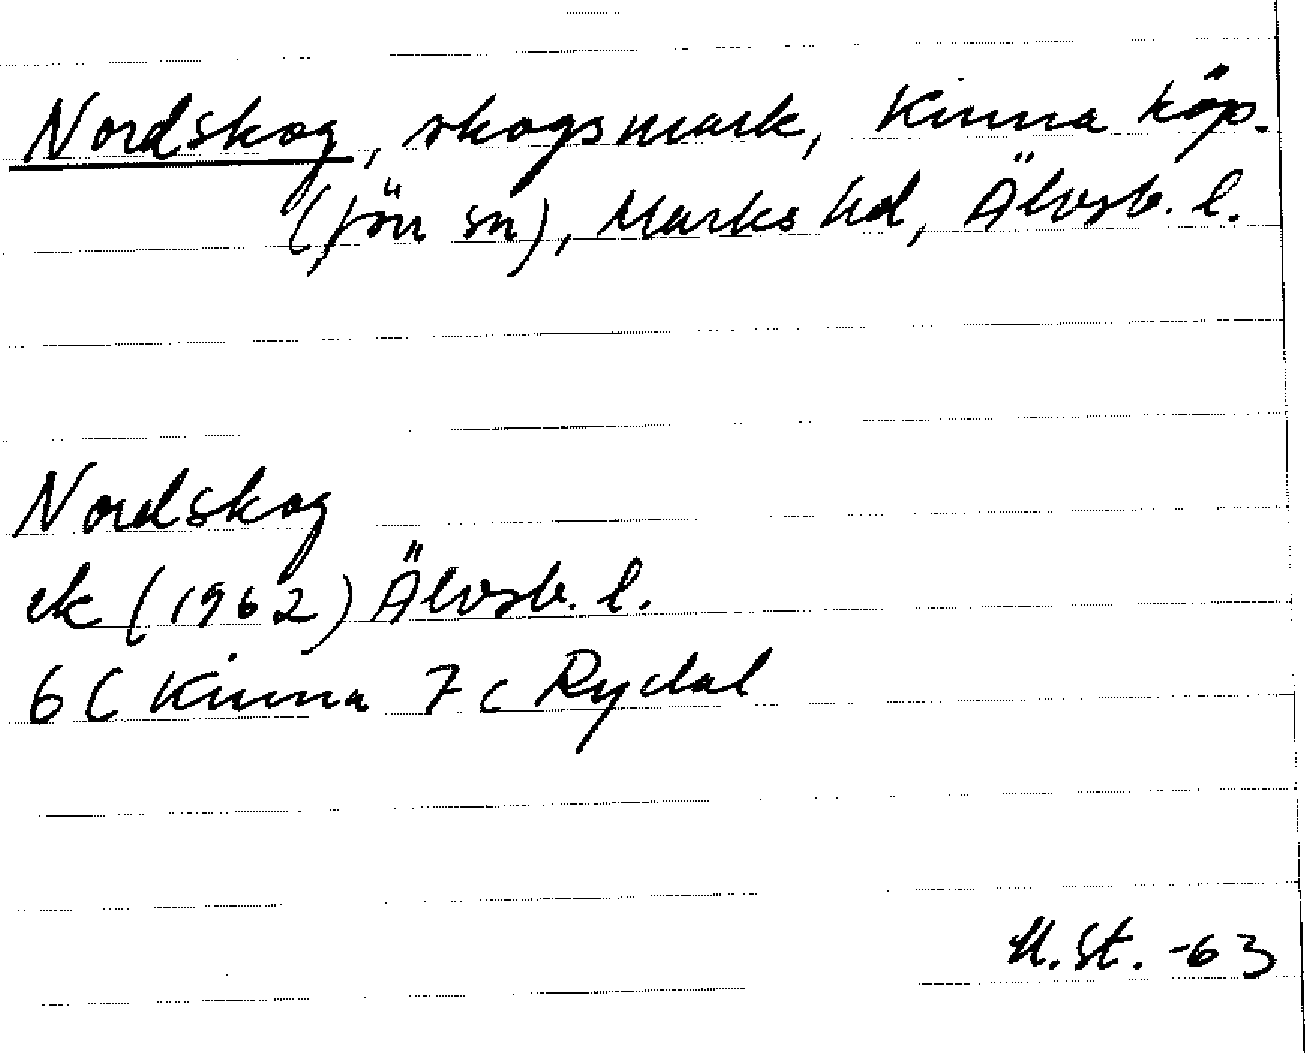 Nordskog, skogsmark, Kinna köp.
(förr sn), Marks hd, Älvsb. l.
Nordskog
ek (1962) Älvsb. l.
6 C Kinna 7 c Rydal
M. St. -63